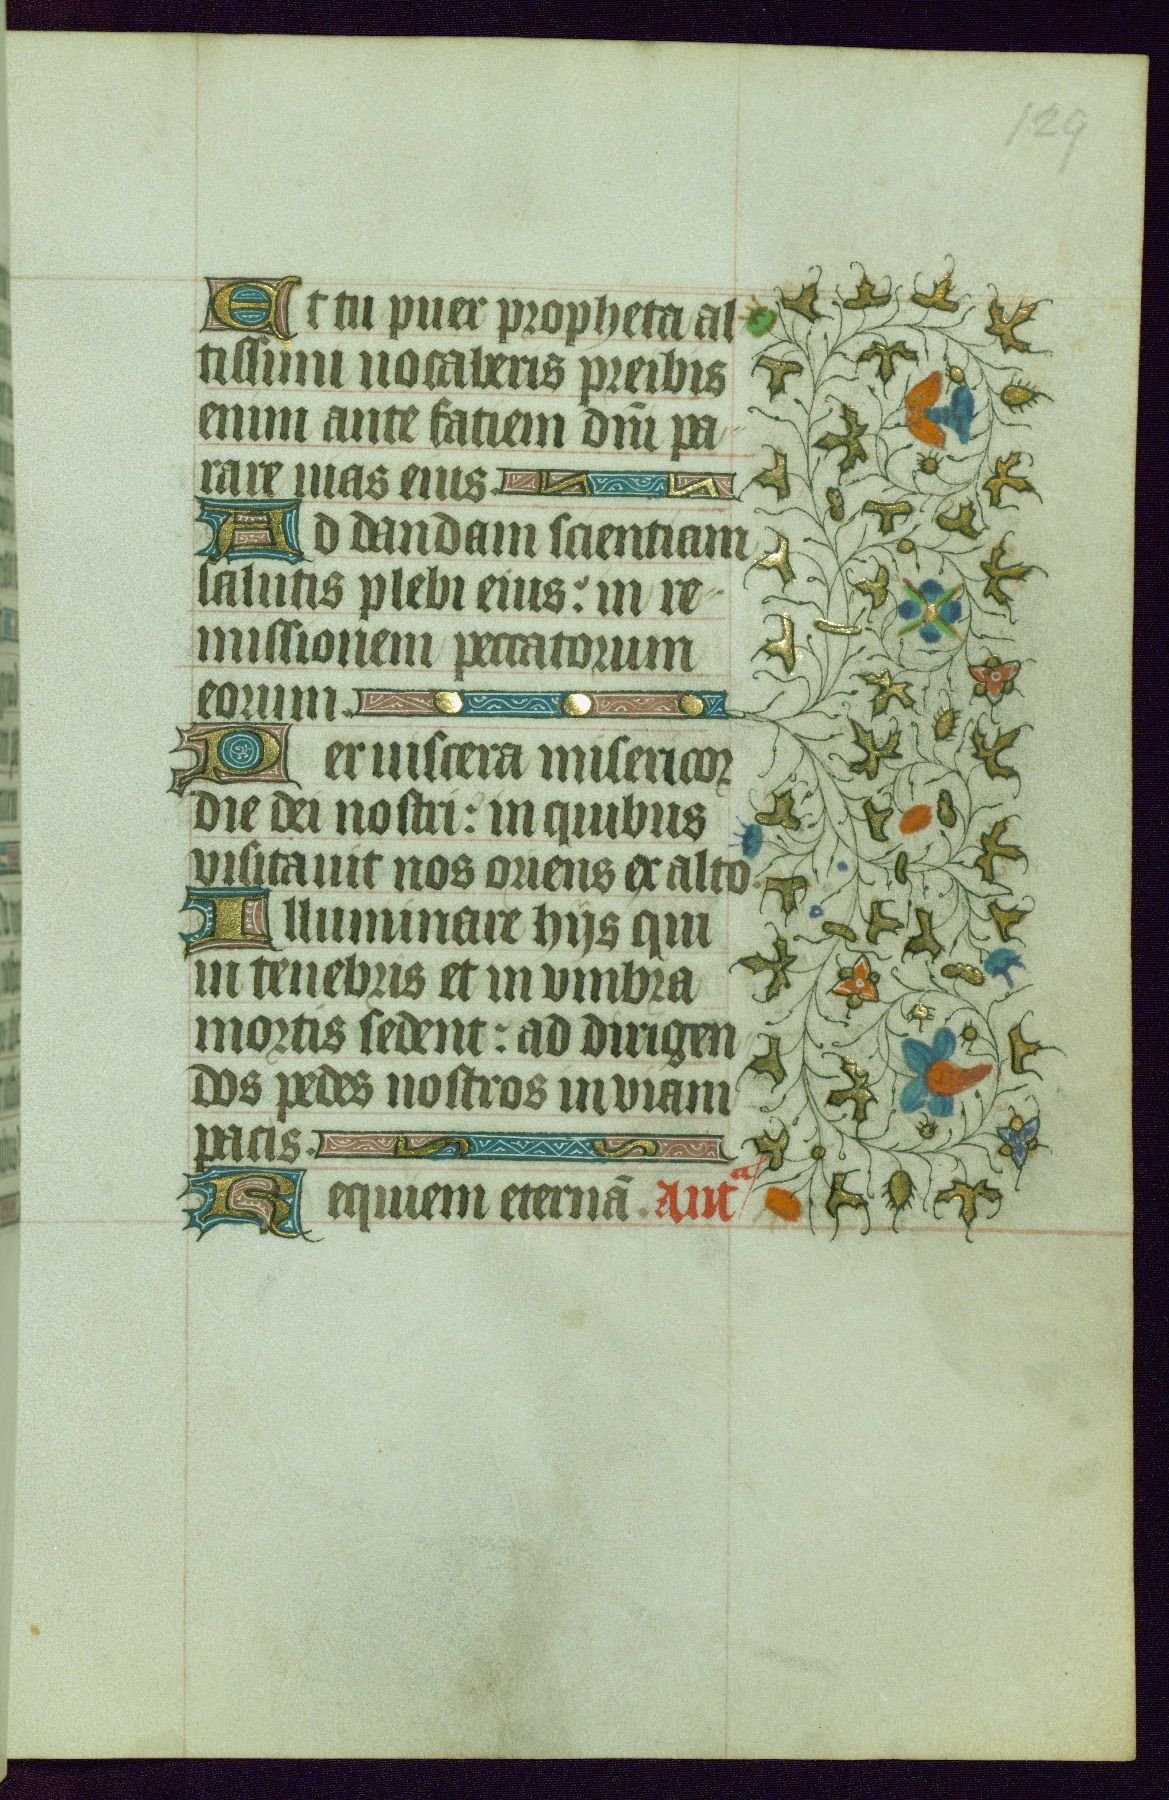 129
Et tu puer propheta al
tissimi uocaberis preibis
enim ante fatiem dñi pa
rare uias eius.
Ad dandam scientiam
salutis plebi eius: in re-
missionem peccatorum
eorum.
Per uiscera misericor
die dei nostri: in quibus
visitauit nos oriens ex alto.
Illuminare hijs qui
in tenebris et in vmbra
mortis sedent: ad dirigen
dos pedes nostros in viam
pacis.
Requiem eternã. Antᵃ